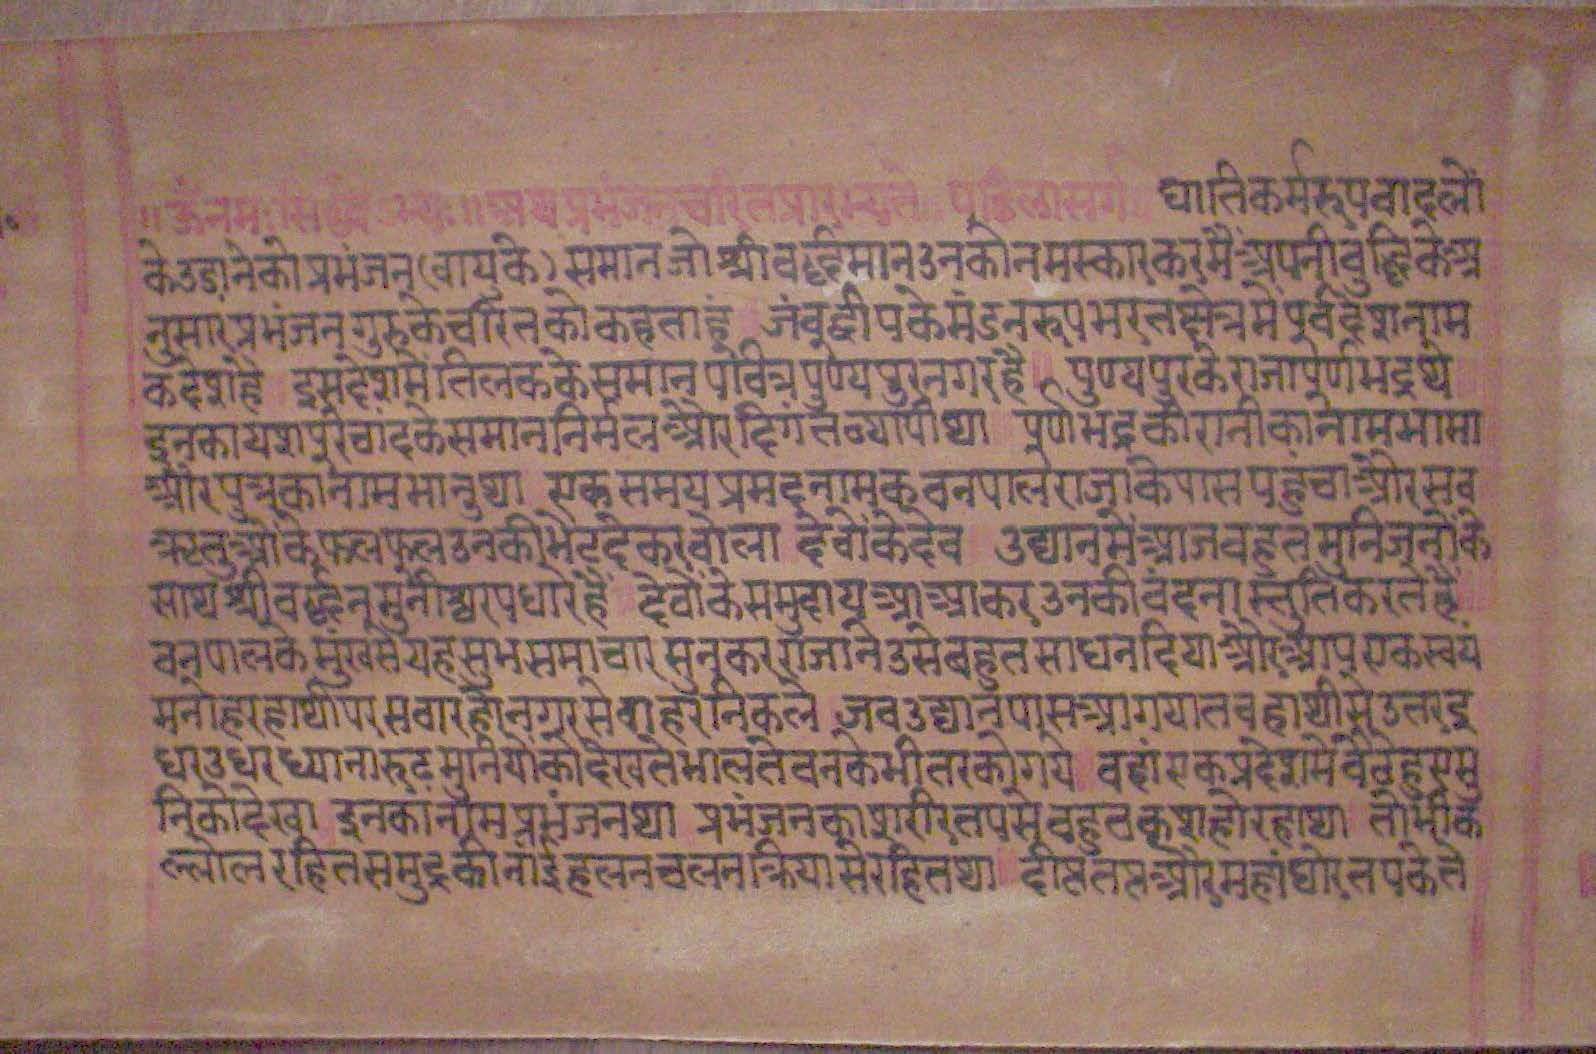 ॥ ऊँनमः सिद्धेभ्यः ॥ अथ प्रभंजनचरित प्रारभ्यते पहिला सर्ग घातिकर्मरूप वादलों
के उडाने को प्रभंजन (वायु के) समान जो श्री वर्द्धिमान उनको नमस्कार कर मैं अपनी वुद्धि के अ
नुसार प्रभंजन गुरु के चरित को कहता हूं जंवूद्वीप के मंडनरूप भरतक्षेत्र में पूर्वदेश नाम
क देश है इस देश में तिलक के समान पवित्र पुण्यपुर नगर है पुण्यपुर के राजा पूर्णभद्र थे
इनका यश पूरे चांद के समान निर्मल और दिगंत व्यापी था पूर्णभद्र की रानी का नाम भामा
और पुत्र का नाम भानु था एक समय प्रमद नामक वनपाल राजा के पास पहुंचा और सव
ऋतुओं के फल फूल उनकी भेट देकर वोला देवों के देव उद्यान में आज वहुत मुनिजनों के
साथ श्री वर्द्धन मुनीश्वर पधारे हैं देवों के समुदाय आ आकर उनकी वंदना स्तुति करते हैं
वनपाल के मुख से यह सुभ समाचार सुनकर राजा ने उसे बहुत सा धन दिया और आप एक स्वयं
मनोहर हाथी पर सवार हो नगर से वाहर निकले जव उद्यान पास आ गया तव हाथी से उतर इ
धर उधर ध्यानारूढ मुनियों को देखते भालते वन के भीतर को गये वहां एक प्रदेश में वैठे हुए मु
नि को देखा इनका नाम प्रभंजन था प्रभंजन का शरीर तप से वहुत कृश हो रहा था तो भी क
ल्लोल रहित समुद्र की नांई हलन चलन क्रिया से रहित था दीप्त तप्त और महा घोर तप के ते